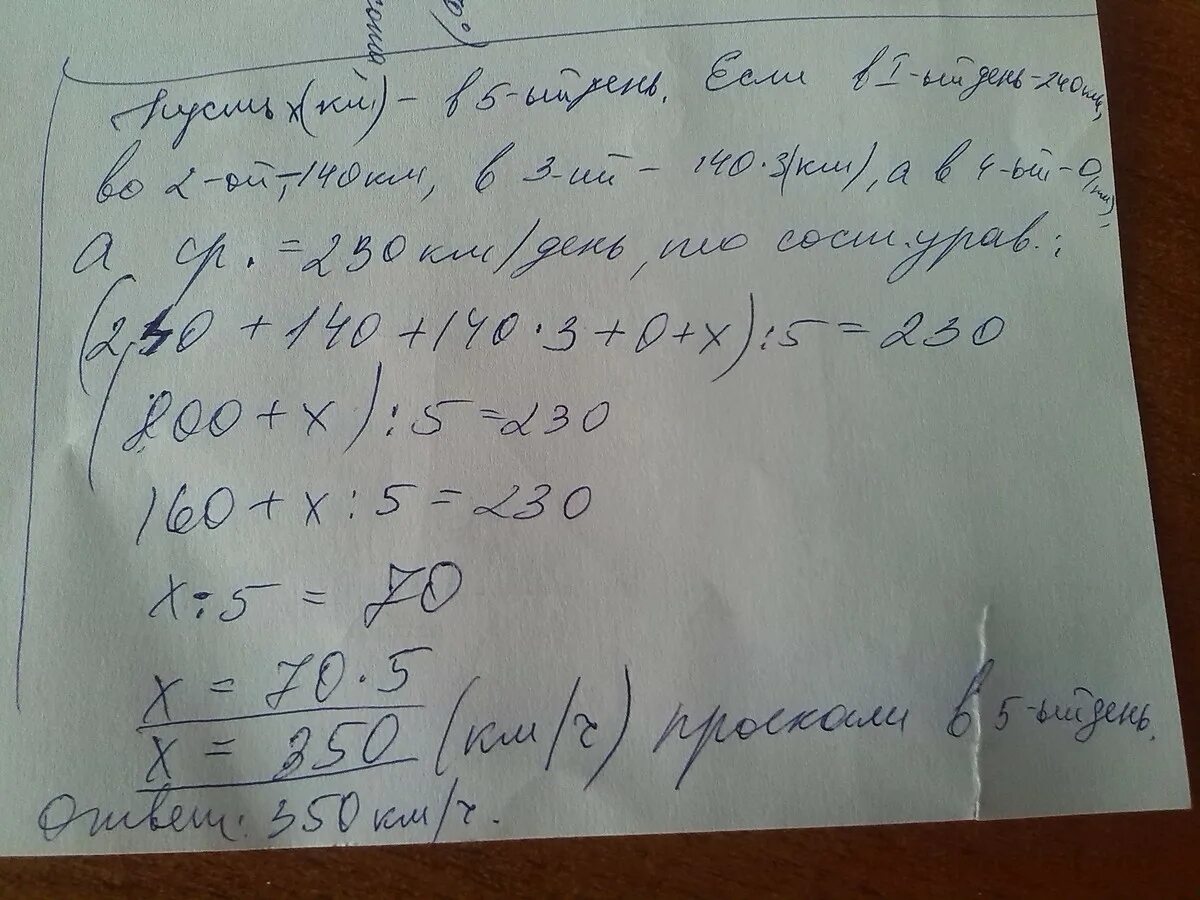 Пусть x(км) - в 5-ый день. Если в I-ый день-240км,
во 2-ой,-140км, в 3-ий - 140·3(км), а в 4-ый-0(км),
а ср. = 230км/день, то сост.урав.:
(240 + 140 + 140·3 + 0 + x) : 5 = 230
(800 + x) : 5 = 230
160 + x : 5 = 230
x : 5 = 70
x = 70·5
x = 350 (км/ч) проехали в 5-ый день.
Ответ: 350км/ч.